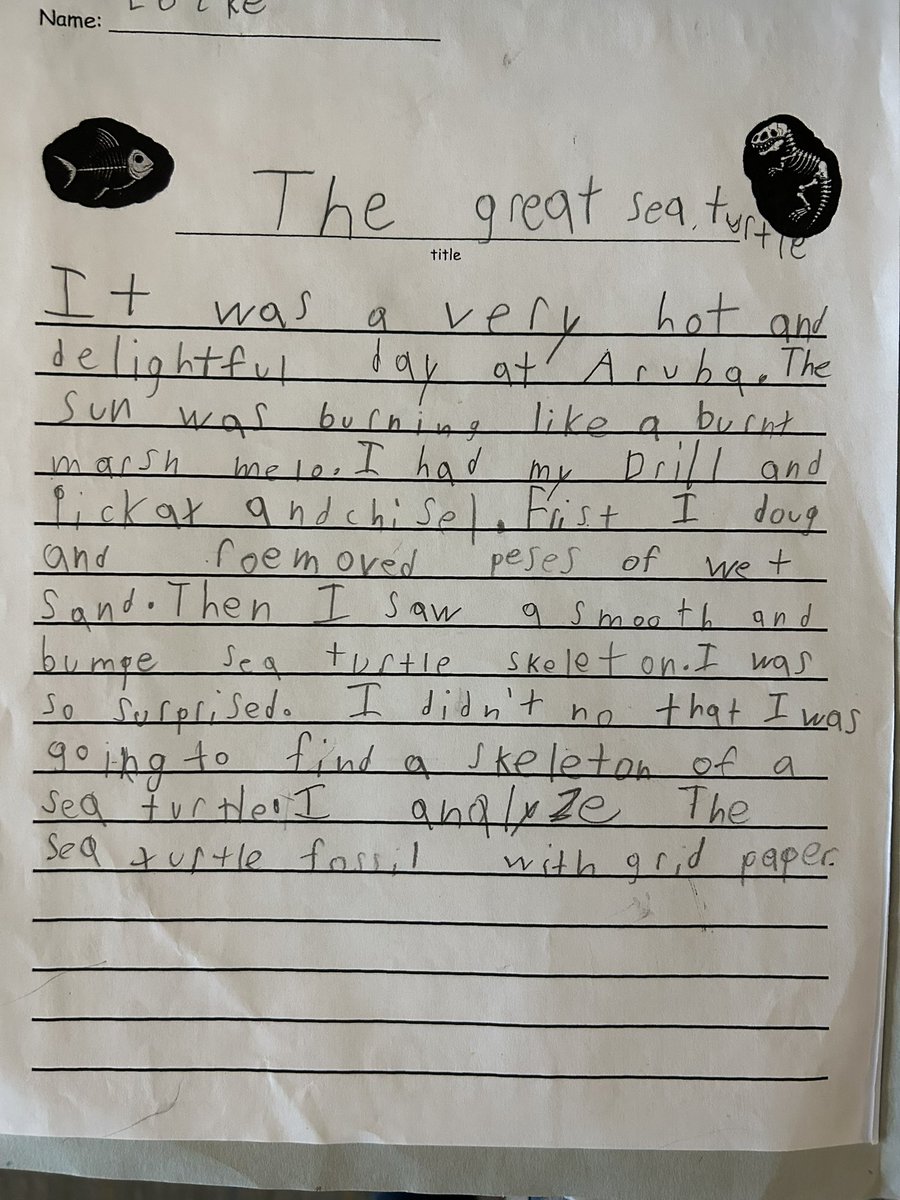 Name:
The great sea turtle
title
It was a very hot and
delightful day at Aruba. The
sun was burning like a burnt
marsh melo. I had my Drill and
Pickax and chisel. Frist I doug
and roemoved peses of wet
sand. Then I saw a smooth and
bumpe sea turtle skeleton. I was
so surprised. I didn't no that I was
going to find a skeleton of a
sea turtle. I analyze The
sea turtle fossil with grid paper.